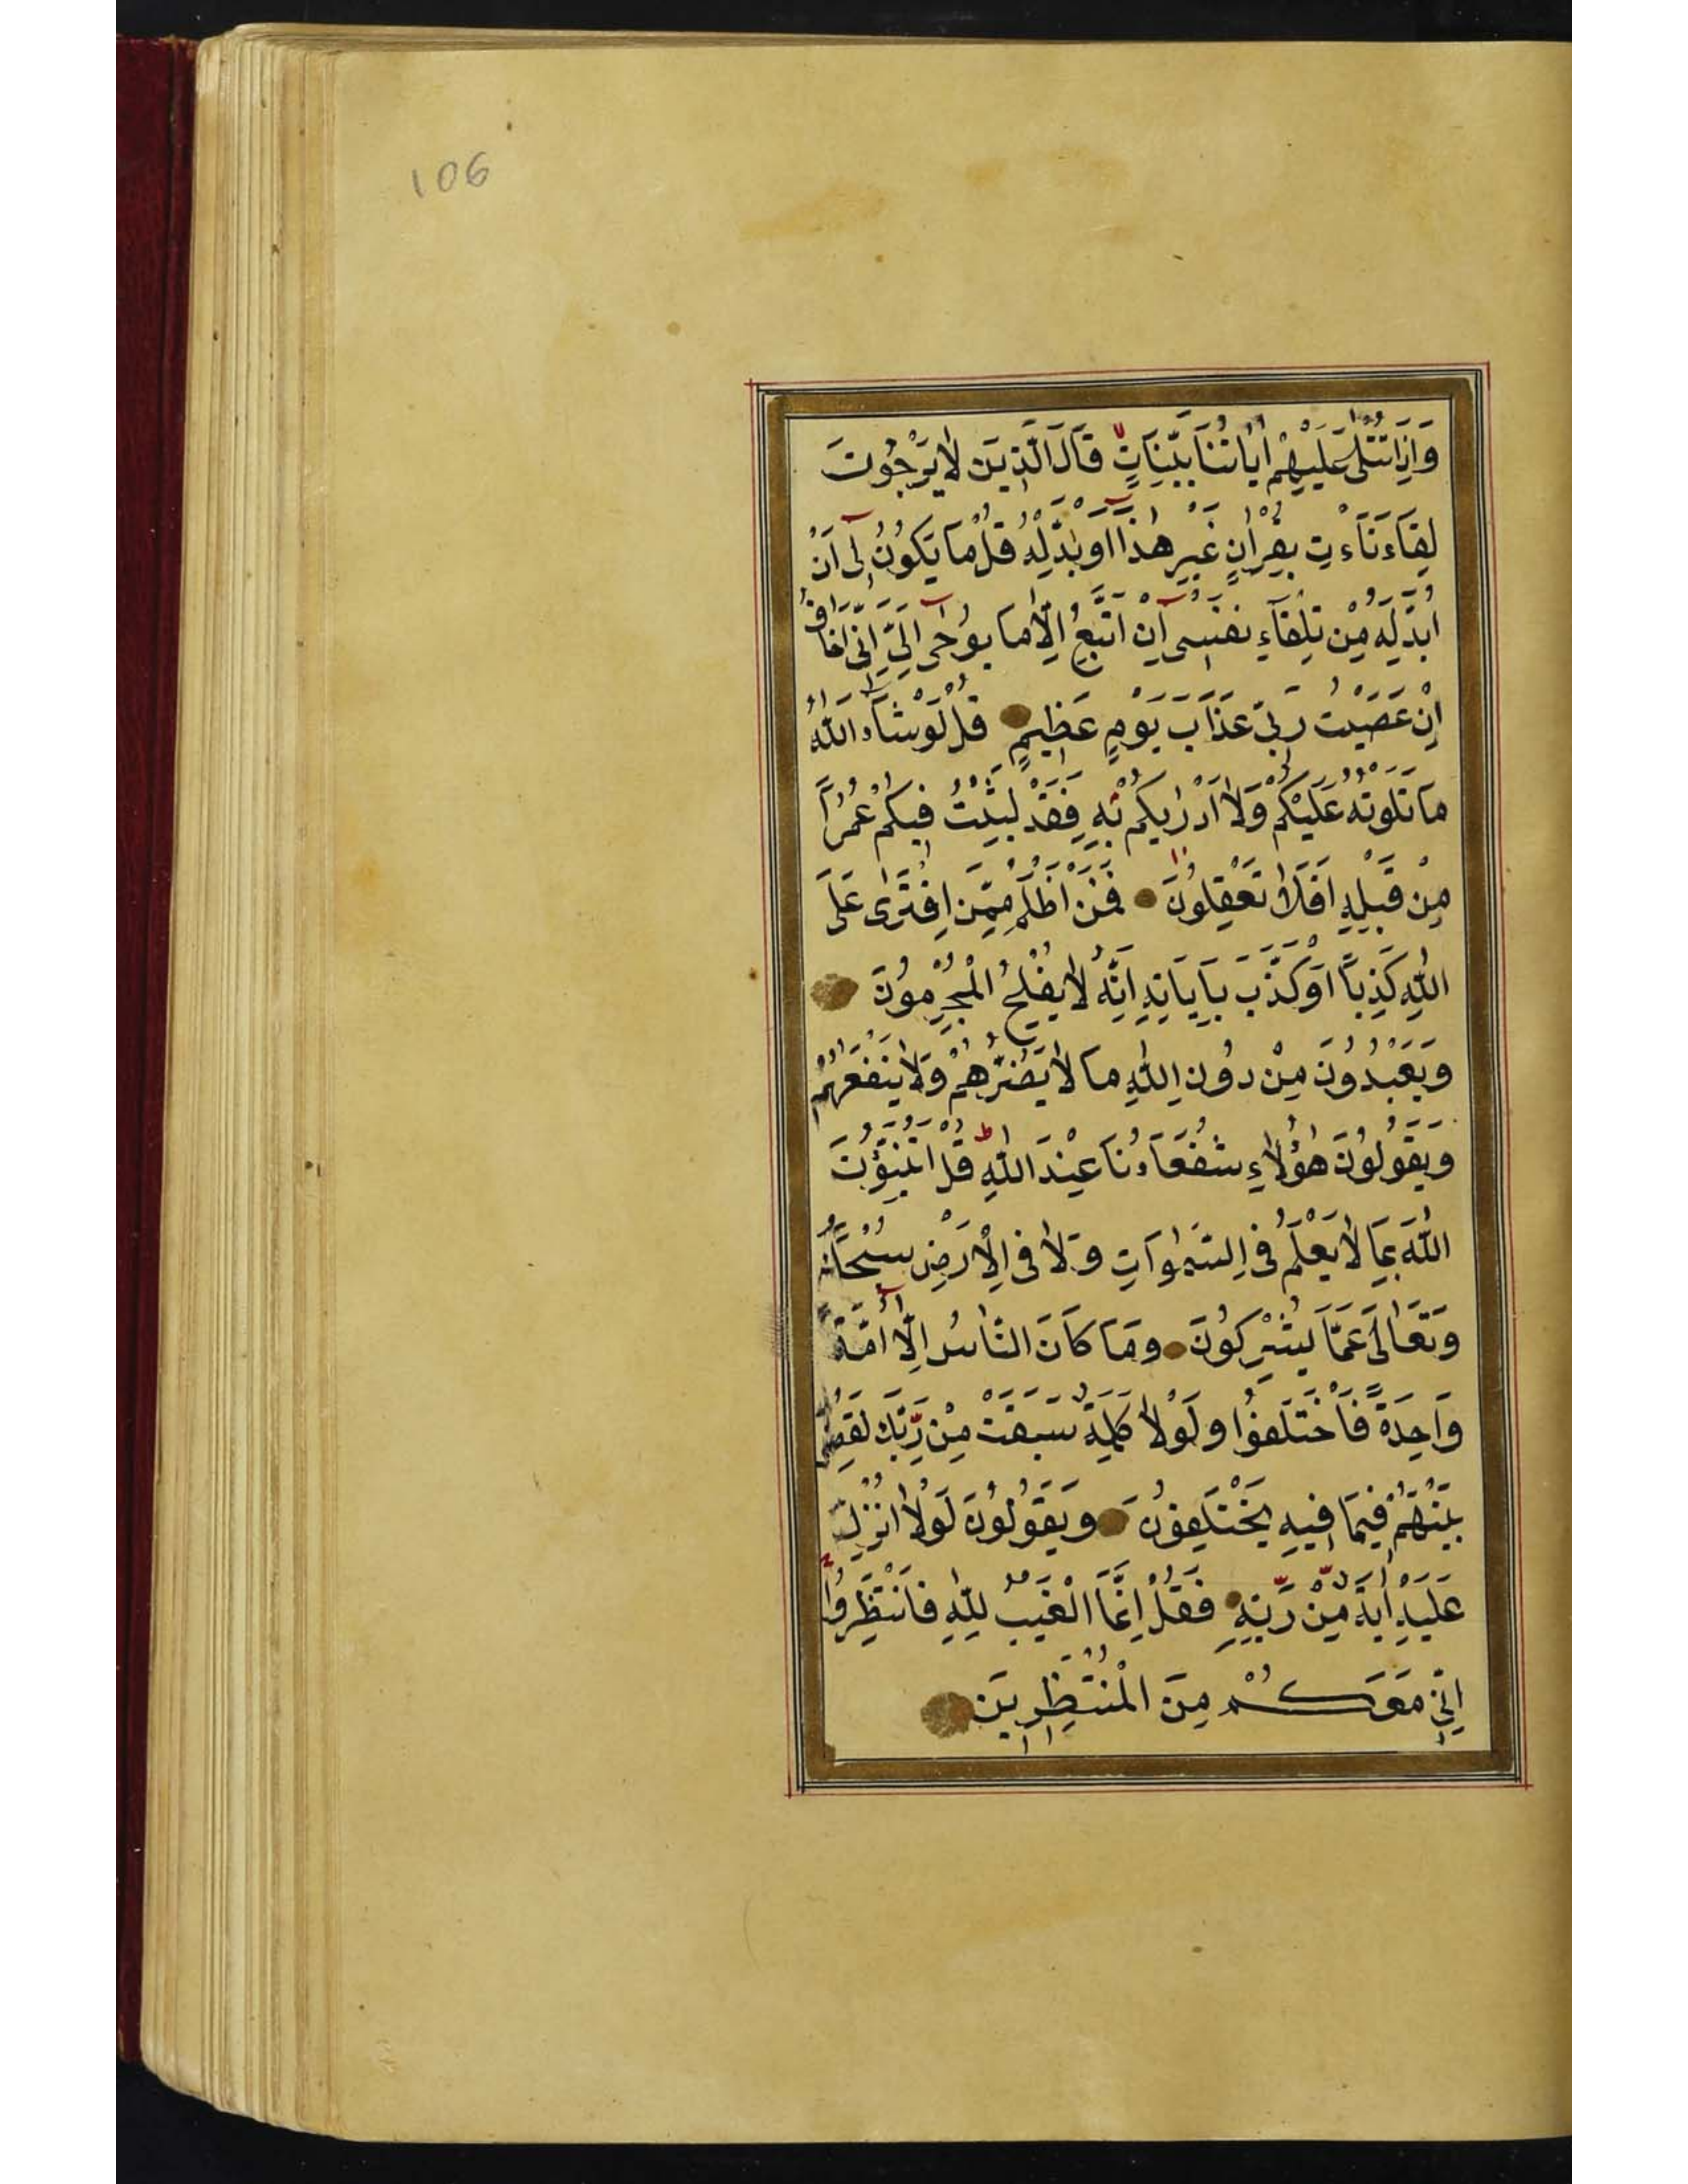 106
وَاِذَا تُتْلٰى عَلَيْهِمْ اٰيَاتُنَا بَيِّنَاتٍ قَالَ الَّذِينَ لَا يَرْجُونَ
لِقَاءَنَا ءْتِ بِقُرْاٰنٍ غَيْرِ هٰذَا اَوْ بَدِّلْهُ قُلْ مَا يَكُونُ لِى اَنْ
اُبَدِّلَهُ مِنْ تِلْقَآءِ نَفْسِى اِنْ اَتَّبِعُ اِلَّا مَا يُوحٰى اِلَىَّ اِنِّى اَخَافُ
اِنْ عَصَيْتُ رَبِّى عَذَابَ يَوْمٍ عَظِيمٍ قُلْ لَوْ شَآءَ اللّٰهُ
مَا تَلَوْتُهُ عَلَيْكُمْ وَلَا اَدْرٰيكُمْ بِهِ فَقَدْ لَبِثْتُ فِيكُمْ عُمُرًا
مِنْ قَبْلِهِ اَفَلَا تَعْقِلُونَ فَمَنْ اَظْلَمُ مِمَّنِ افْتَرٰى عَلَى
اللّٰهِ كَذِبًا اَوْ كَذَّبَ بِاٰيَاتِهِ اِنَّهُ لَا يُفْلِحُ الْمُجْرِمُونَ
وَيَعْبُدُونَ مِنْ دُونِ اللّٰهِ مَا لَا يَضُرُّهُمْ وَلَا يَنْفَعُهُمْ
وَيَقُولُونَ هٰؤُلَاءِ شُفَعَاءُنَا عِنْدَ اللّٰهِ قُلْ اَتُنَبِّؤُنَ
اللّٰهَ بِمَا لَا يَعْلَمُ فِى السَّمٰوَاتِ وَلَا فِى الْاَرْضِ سُبْحَانَهُ
وَتَعَالٰى عَمَّا يُشْرِكُونَ وَمَا كَانَ النَّاسُ اِلَّا اُمَّةً
وَاحِدَةً فَاخْتَلَفُوا وَلَوْلَا كَلِمَةٌ سَبَقَتْ مِنْ رَبِّكَ لَقُضِىَ
بَيْنَهُمْ فِيمَا فِيهِ يَخْتَلِفُونَ وَيَقُولُونَ لَوْلَا اُنْزِلَ
عَلَيْهِ اٰيَةٌ مِنْ رَبِّهِ فَقُلْ اِنَّمَا الْغَيْبُ لِلّٰهِ فَانْتَظِرُوا
اِنِّى مَعَكُمْ مِنَ الْمُنْتَظِرِينَ